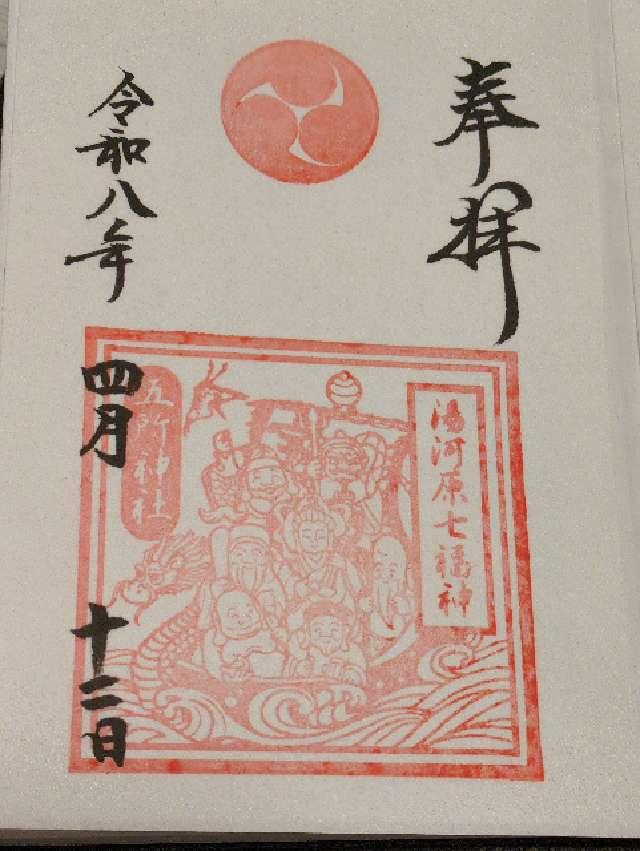 奉拝
湯河原七福神
五所神社
令和八年
四月
十二日